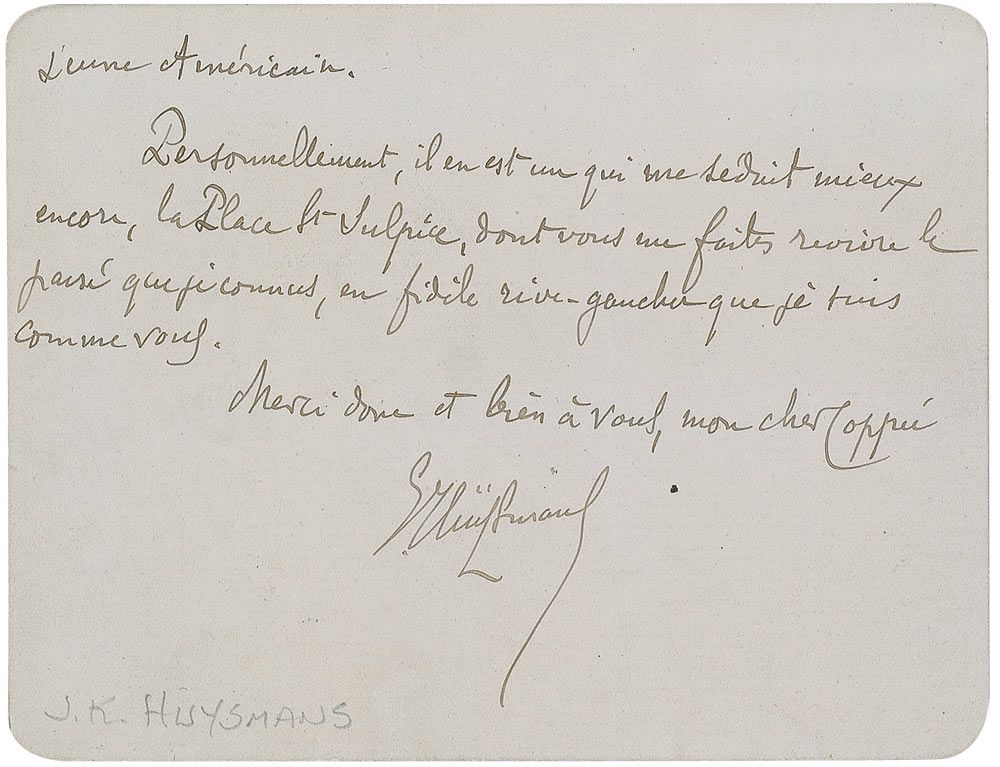 jeune Américain.
Personnellement, il en est un qui me séduit mieux
encore, la Place St Sulpice, dont vous me faites revivre le
passé que je connus, en fidèle rive-gaucher que je suis
comme vous.
Merci donc et bien à vous, mon cher Coppée
G. Huÿsmans
J. K. HUYSMANS